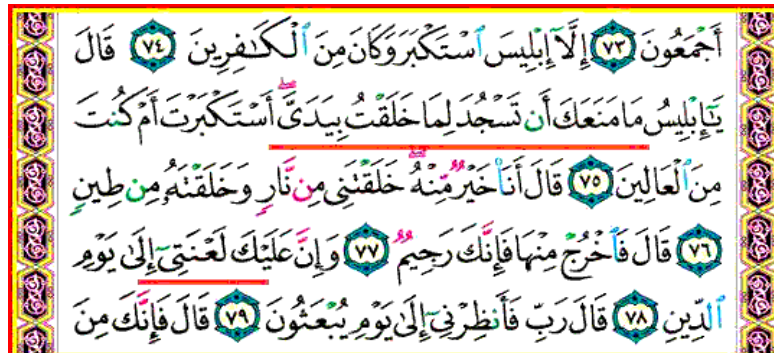 أَجْمَعُونَ ﴿٧٣﴾ إِلَّآ إِبْلِيسَ ٱسْتَكْبَرَ وَكَانَ مِنَ ٱلْكَـٰفِرِينَ ﴿٧٤﴾ قَالَ
يَـٰٓإِبْلِيسُ مَا مَنَعَكَ أَن تَسْجُدَ لِمَا خَلَقْتُ بِيَدَىَّ ۖ أَسْتَكْبَرْتَ أَمْ كُنتَ
مِنَ ٱلْعَالِينَ ﴿٧٥﴾ قَالَ أَنَا۠ خَيْرٌ مِّنْهُ ۖ خَلَقْتَنِى مِن نَّارٍ وَخَلَقْتَهُۥ مِن طِينٍ
﴿٧٦﴾ قَالَ فَٱخْرُجْ مِنْهَا فَإِنَّكَ رَجِيمٌ ﴿٧٧﴾ وَإِنَّ عَلَيْكَ لَعْنَتِىٓ إِلَىٰ يَوْمِ
ٱلدِّينِ ﴿٧٨﴾ قَالَ رَبِّ فَأَنظِرْنِىٓ إِلَىٰ يَوْمِ يُبْعَثُونَ ﴿٧٩﴾ قَالَ فَإِنَّكَ مِنَ